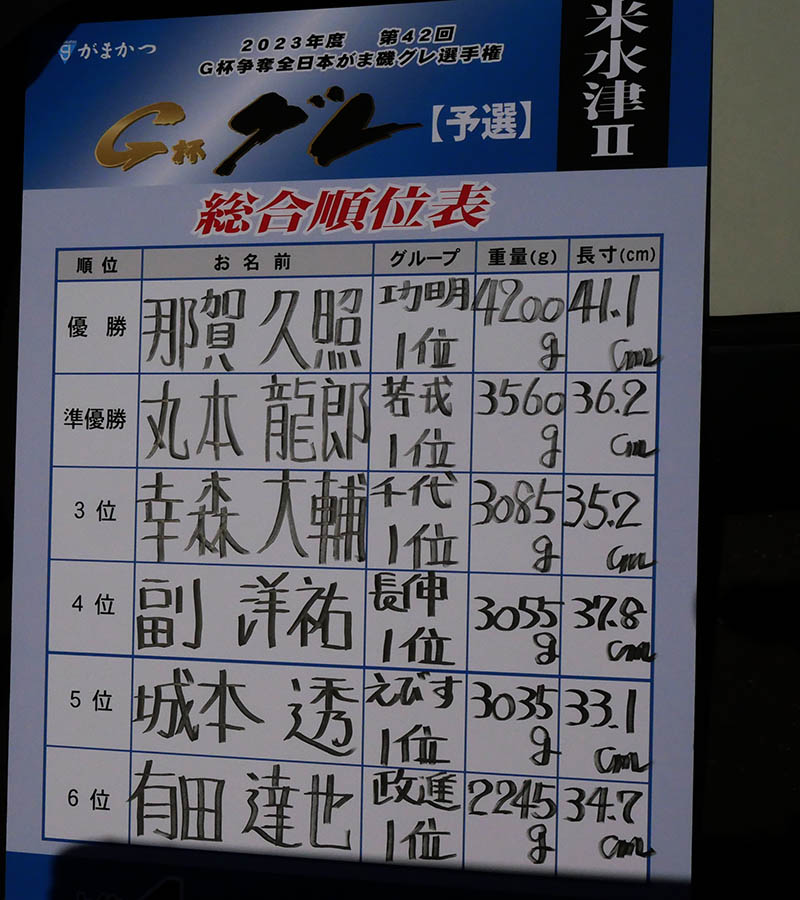 がまかつ
2023年度 第42回
G杯争奪全日本がま磯グレ選手権
G杯 グレ 【予選】
米水津Ⅱ
総合順位表
順位 お名前 グループ 重量(g) 長寸(cm)
優勝 那賀 久照 功明 1位 4200g 41.1cm
準優勝 丸本 龍郎 若戎 1位 3560g 36.2cm
3位 幸森 大輔 千代 1位 3085g 35.2cm
4位 副 洋祐 長伸 1位 3055g 37.8cm
5位 城本 透 えびす 1位 3035g 33.1cm
6位 有田 達也 政進 1位 2245g 34.7cm